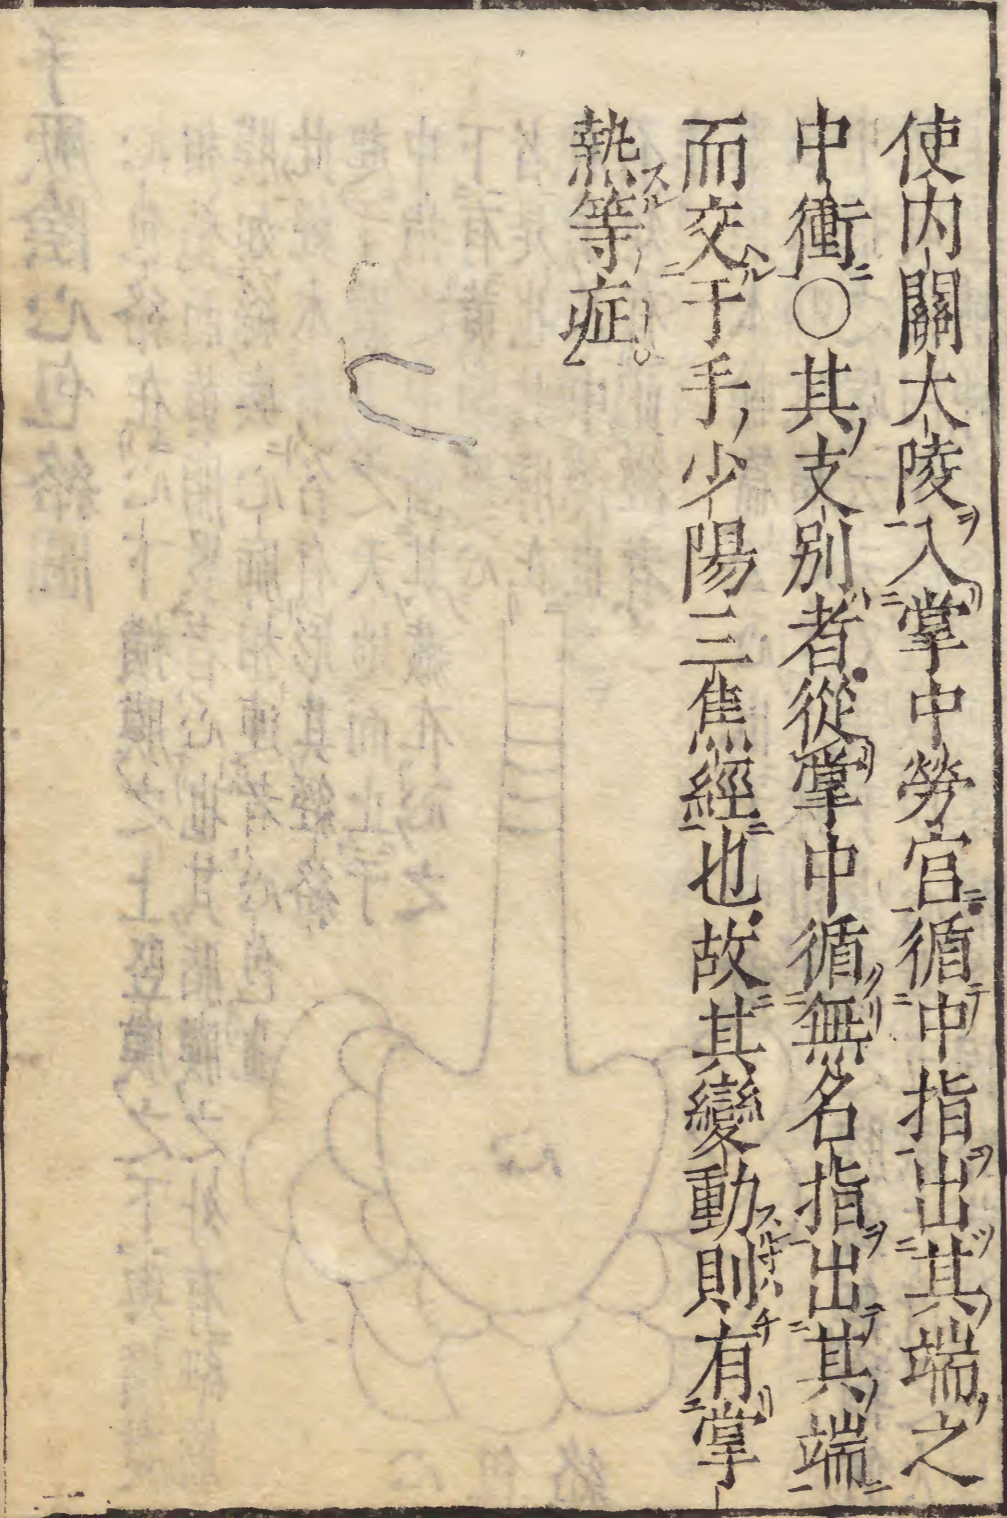 使内關大陵入掌中勞宮循中指出其端之
中衝〇其支別者從掌中循無名指出其端
而交于手少陽三焦經也故其變動則有掌
熱等症